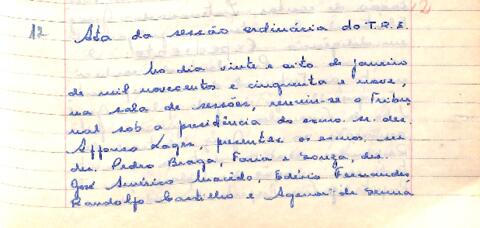 12
12 Ata da sessão ordinária do T.R.E.
No dia vinte e oito de janeiro
de mil novecentos e cinquenta e nove,
na sala de sessões, reuniu-se o Tribu
nal sob a presidência do exmo. sr. des.
Affonso Lages, presentes os exmos. srs.
drs. Pedro Braga, Faria e Souza, des.
José Américo Macêdo, Edésio Fernandes,
Randolfo Castilho e Agenor de Senna